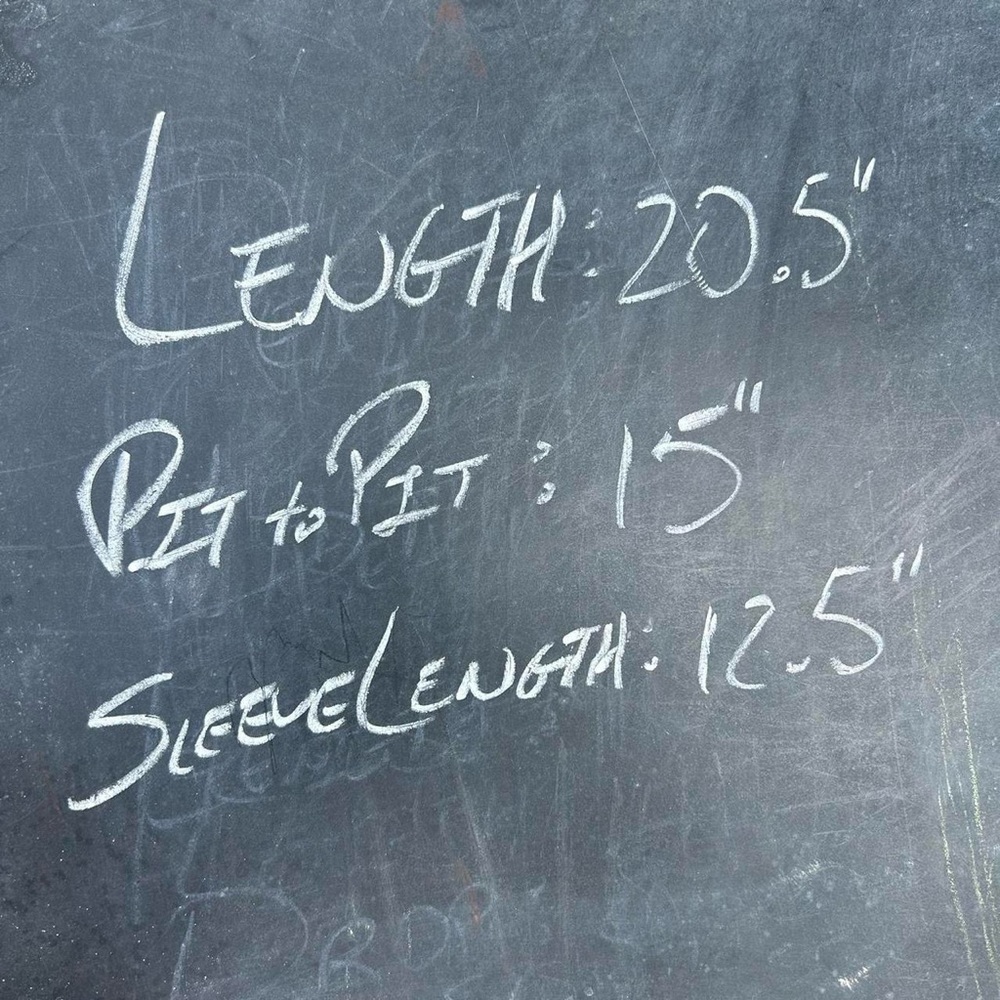 LENGTH: 20.5"
PIT to PIT: 15"
SLEEVE LENGTH: 12.5"